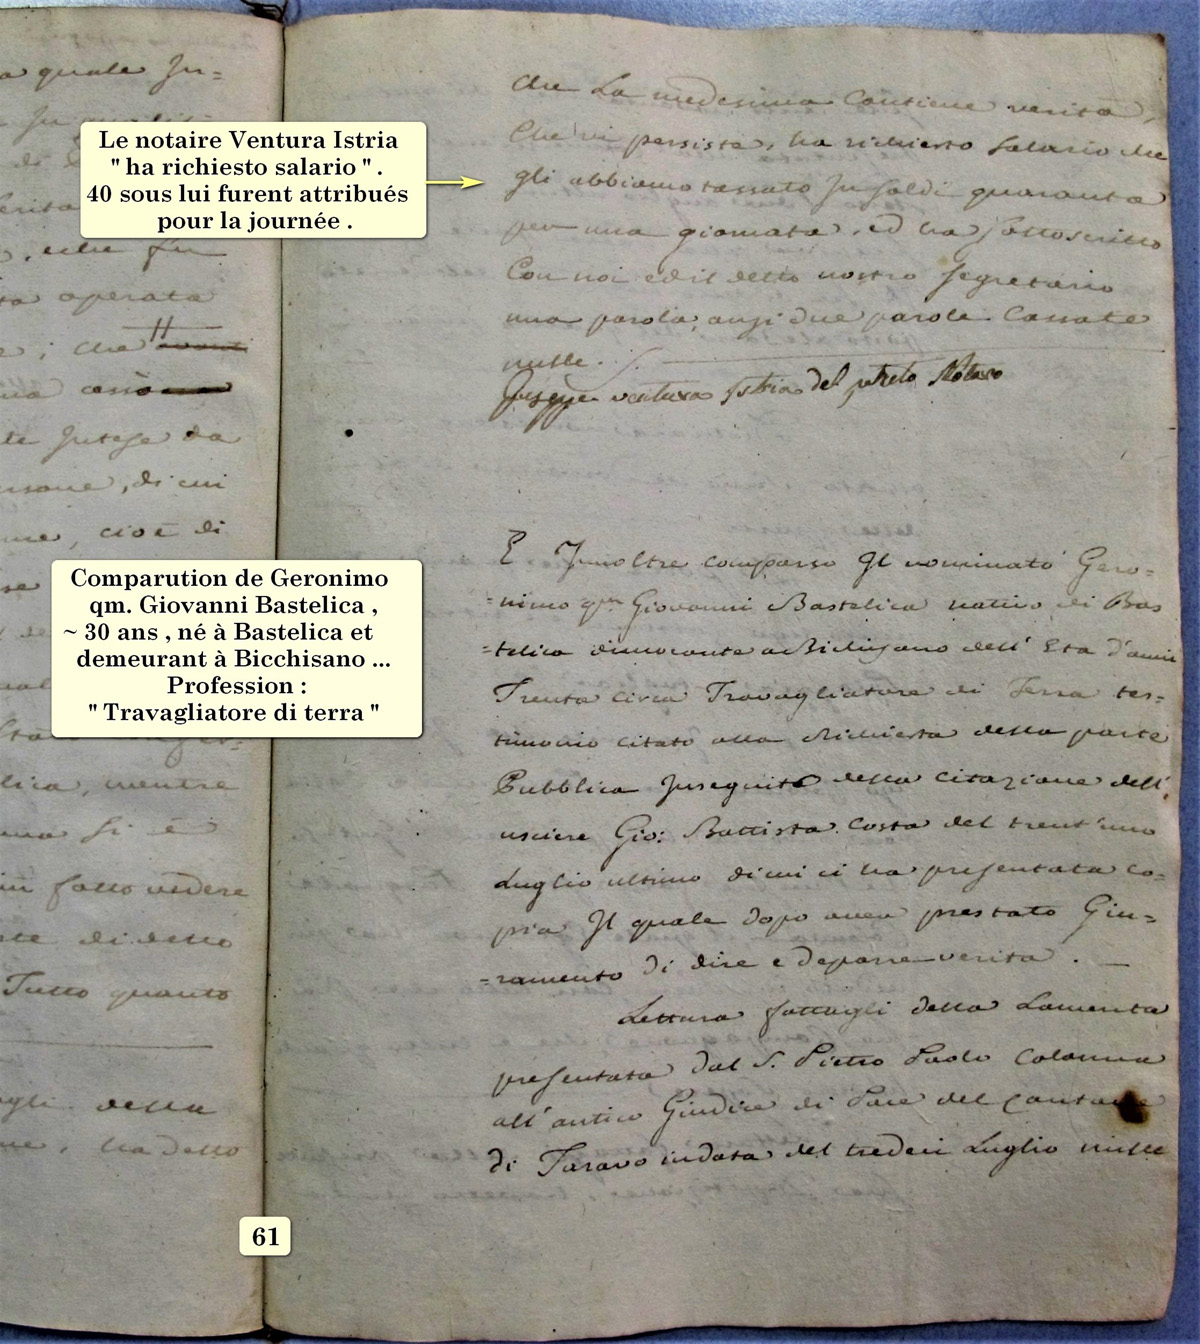 a quale In=
erita
, e che fu
ta operata
e, che
te Intese da
ersone, di cui
me, cioè di
se
lica, mentre
ma si è
fatto vedere
te di detto
Tutto quanto
gli della
ne, ha detto
Le notaire Ventura Istria
" ha richiesto salario " .
40 sous lui furent attribués
pour la journée .
Comparution de Geronimo
qm. Giovanni Bastelica ,
~ 30 ans , né à Bastelica et
demeurant à Bicchisano ...
Profession :
" Travagliatore di terra "
61
che La medesima Contiene verità,
Che vi persiste, ha richiesto Salario che
gli abbiamo tassato In soldi quaranta
per una giornata, ed ha sottoscritto
Con noi ed il detto nostro Segretario
una parola, anzi due parole Cassate
nulle.
Giuseppe ventura Istria del Notaro
E Innoltre comparso Il nominato Gero=
=nimo qm Giovanni Bastelica nativo di Bas
=telica dimorante a Bichisano dell' Età d'anni
Trenta circa Travagliatore di Terra tes=
timonio citato alla Richiesta della parte
Pubblica Inseguito della citazione dell'
usciere Gio: Battista Costa del trent'uno
Luglio ultimo di cui ci ha presentata co=
pia Il quale dopo aver prestato Giu=
=ramento di dire e deporre verità.
Lettura fattagli della Lamenta
presentata dal S. Pietro Paolo Colonna
all' antico Giudice di Pace del Cantone
di Taravo in data del tredeci Luglio mille